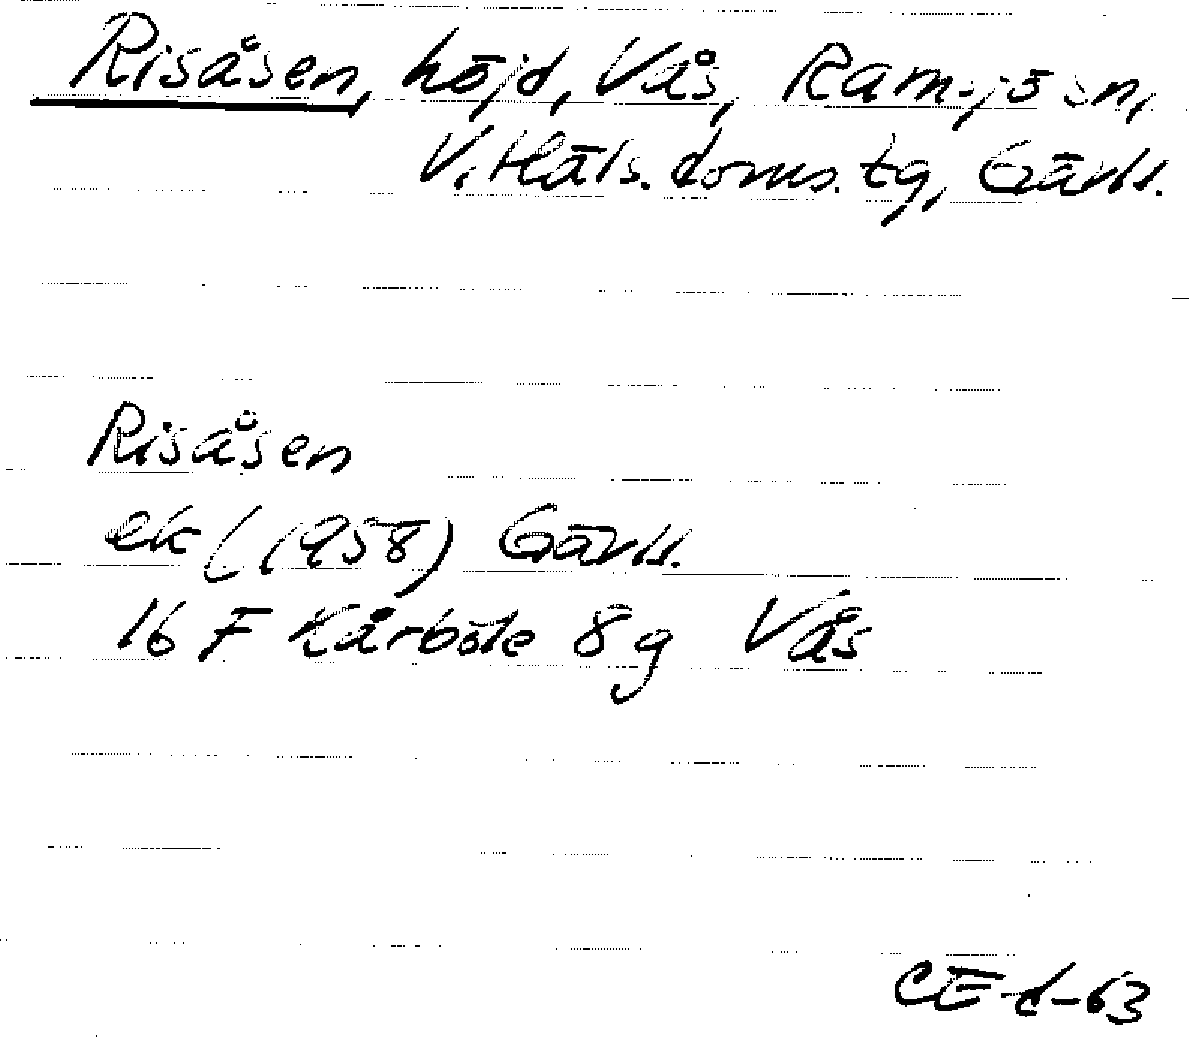 Risåsen, höjd, Vås, Ramsjö sn,
V. Häls. doms. tg, Gävl.
Risåsen
ek (1958) Gävl.
16 F Kårböle 8 g Vås
CE-d-63